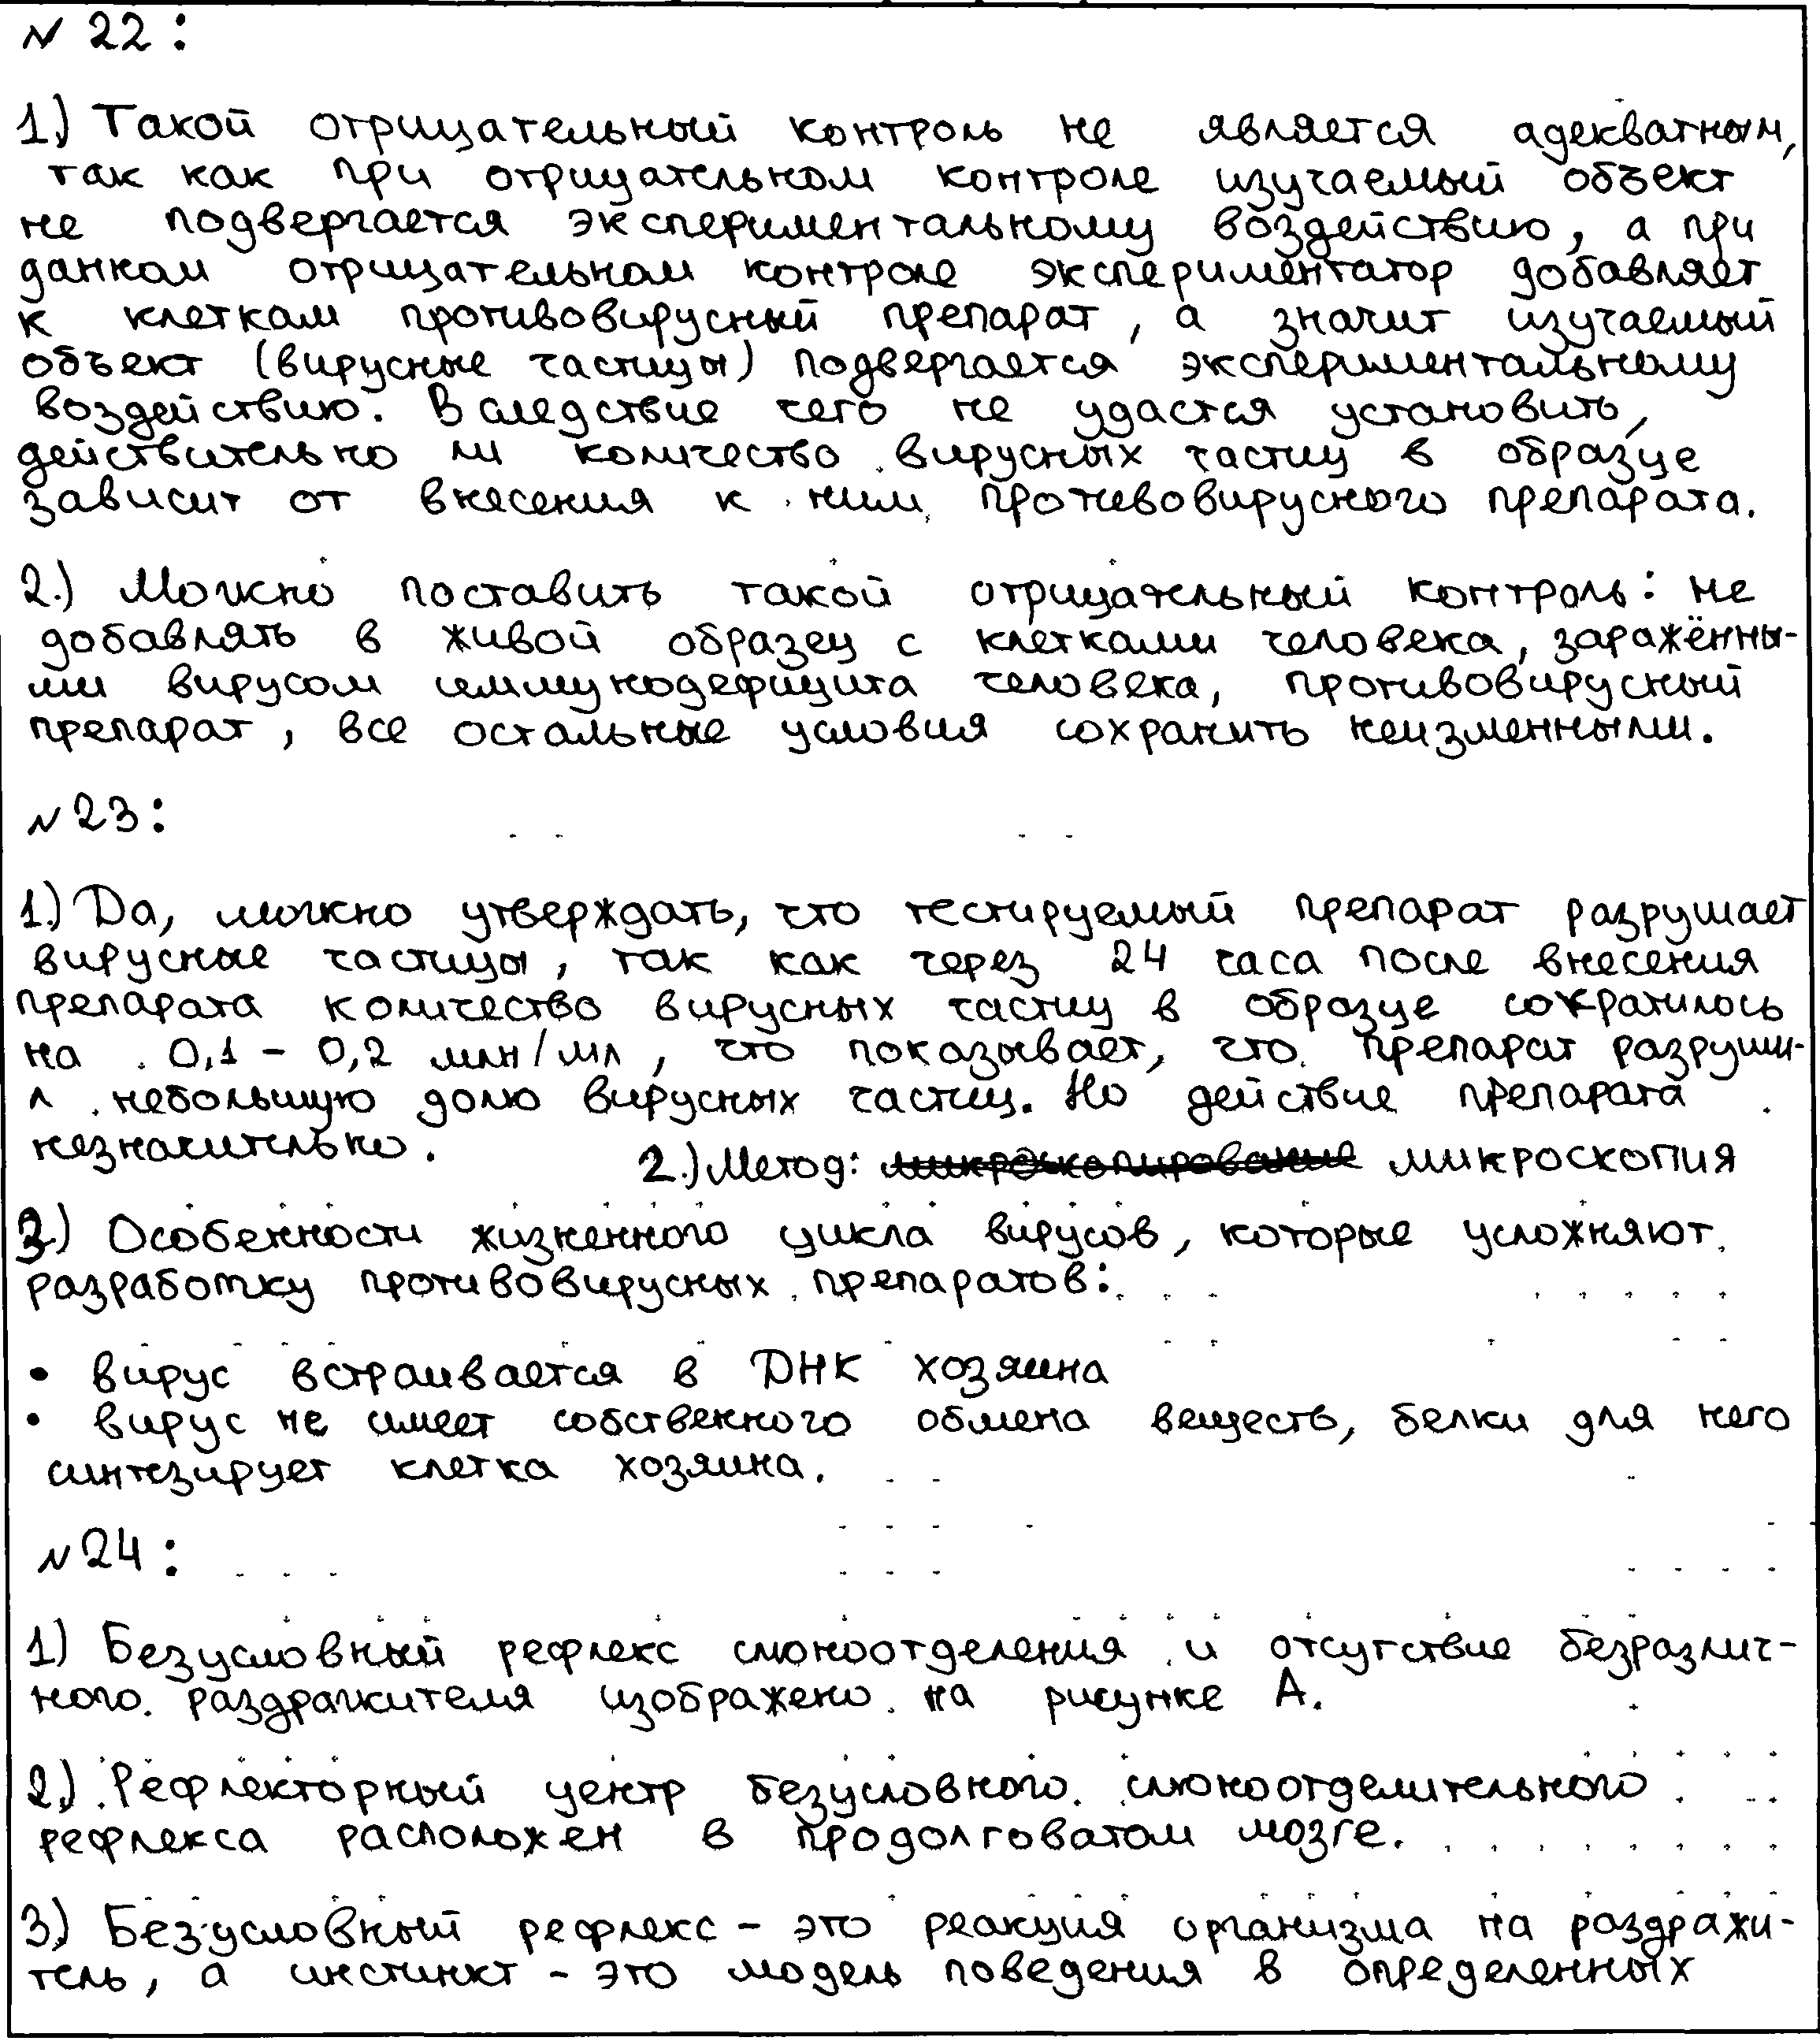 N 22:
1.) Такой отрицательный контроль не является адекватным,
так как при отрицательном контроле изучаемый объект
не подвергается экспериментальному воздействию, а при
данном отрицательном контроле экспериментатор добавляет
к клеткам противовирусный препарат, а значит изучаемый
объект (вирусные частицы) подвергается экспериментальному
воздействию. Вследствие чего не удастся установить,
действительно ли количество вирусных частиц в образце
зависит от внесения к ним противовирусного препарата.
2.) Можно поставить такой отрицательный контроль: не
добавлять в живой образец с клетками человека, заражённы-
ми вирусом иммунодефицита человека, противовирусный
препарат, все остальные условия сохранить неизменными.
N 23:
1.) Да, можно утверждать, что тестируемый препарат разрушает
вирусные частицы, так как через 24 часа после внесения
препарата количество вирусных частиц в образце сократилось
на 0,1 - 0,2 млн/мл, что показывает, что препарат разруши-
л небольшую долю вирусных частиц. Но действие препарата
незначительно.
2.) Метод: микроскопирование микроскопия
3.) Особенности жизненного цикла вирусов, которые усложняют
разработку противовирусных препаратов:
• вирус встраивается в ДНК хозяина
• вирус не имеет собственного обмена веществ, белки для него
синтезирует клетка хозяина.
N 24:
1) Безусловный рефлекс слюноотделения и отсутствие безразлич-
ного раздражителя изображено на рисунке А.
2.) Рефлекторный центр безусловного слюноотделительного
рефлекса расположен в продолговатом мозге.
3.) Безусловный рефлекс - это реакция организма на раздражи-
тель, а инстинкт - это модель поведения в определенных